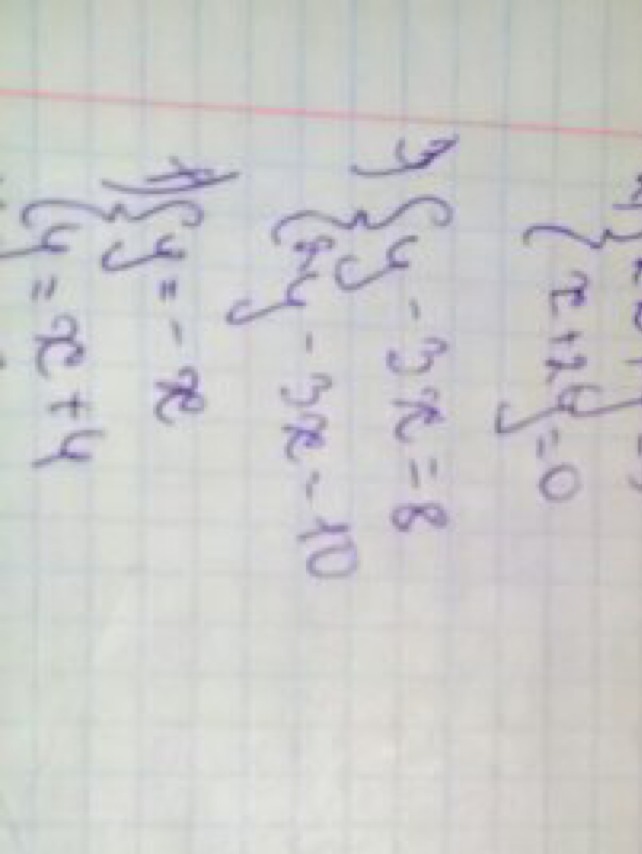 x+2y=0
3) { y - 3x = 8
2y - 3x - 10
{ y = - x
y = x + 4